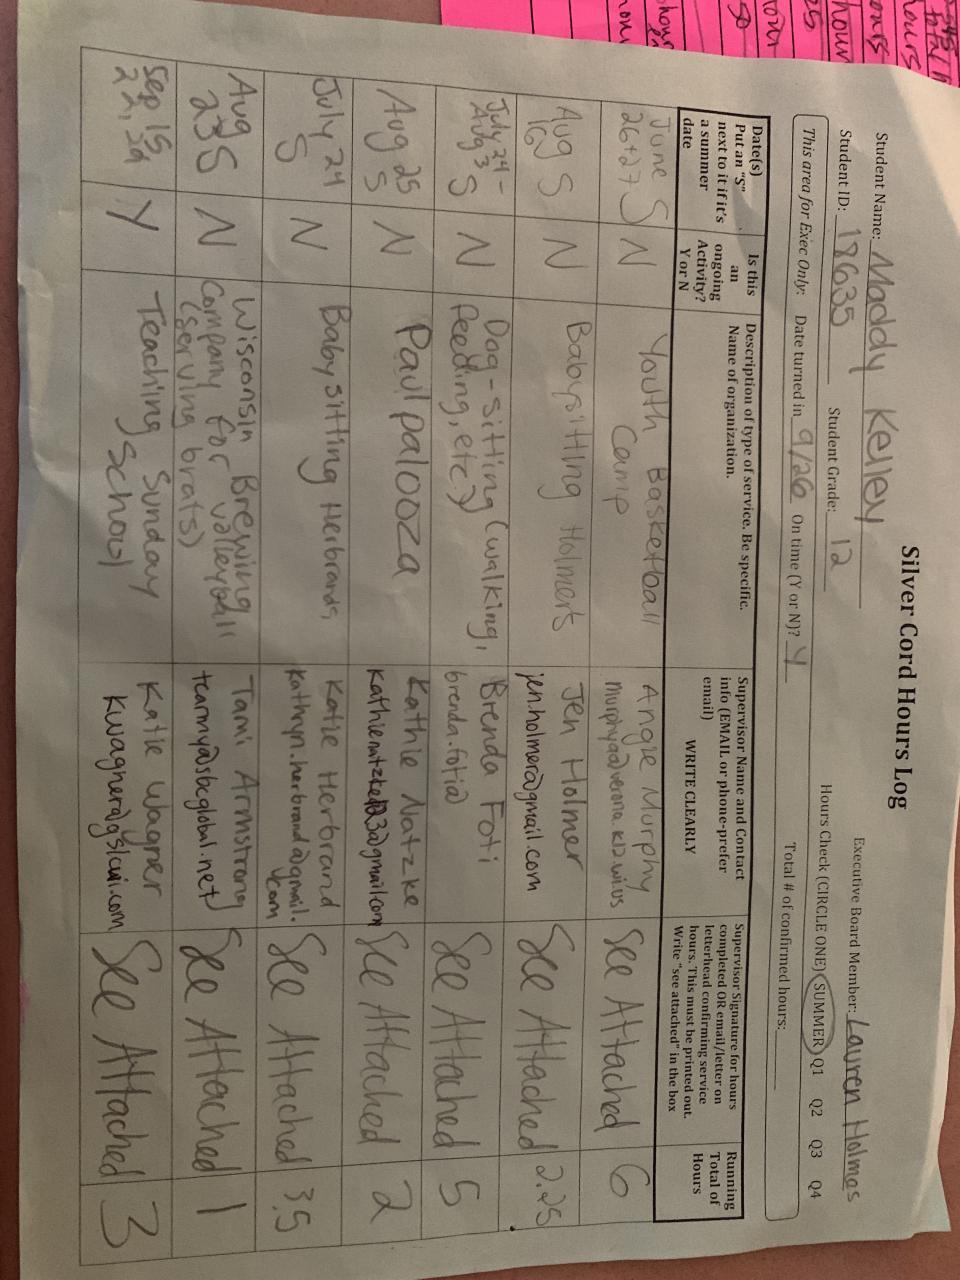 Silver Cord Hours Log
Student Name: Maddy Kelley
Executive Board Member: Lauren Holmes
Student ID: 18635 Student Grade: 12
Hours Check (CIRCLE ONE) SUMMER Q1 Q2 Q3 Q4
This area for Exec Only: Date turned in 9/26 On time (Y or N)? Y
Total # of confirmed hours:
Date(s)
Put an "S"
next to it if it's
a summer
date
Is this
an
ongoing
Activity?
Y or N
Description of type of service. Be specific.
Name of organization.
Supervisor Name and Contact
info (EMAIL or phone-prefer
email)
WRITE CLEARLY
Supervisor Signature for hours
completed OR email/letter on
letterhead confirming service
hours. This must be printed out.
Write "see attached" in the box
Running
Total of
Hours
June
26+27 S
N
Youth Basketball
Camp
Angie Murphy
murphya@verona.k12.wi.us
See Attached
6
Aug
16 S
N
Babysitting Holmers
Jen Holmer
jen.holmer@gmail.com
See Attached
2.25
July 24-
Aug 3 S
N
Dog-sitting (walking,
feeding, etc.)
Brenda Foti
brenda.foti@
See Attached
5
Aug 25
S
N
Paulpalooza
Kathie Natzke
@gmail.com
See Attached
2
July 24
S
N
Babysitting Herbrands
Katie Herbrand
kathryn.herbrand@gmail.
com
See Attached
3.5
Aug
23 S
N
Wisconsin Brewing
Company for volleyball
(serving brats)
Tami Armstrong
tearmy@sbcglobal.net
See Attached
1
Sep 15,
22, 29
Y
Teaching Sunday
School
Katie Wagner
kwagner@gslcwi.com
See Attached
3
hours
hour
hour
25
50